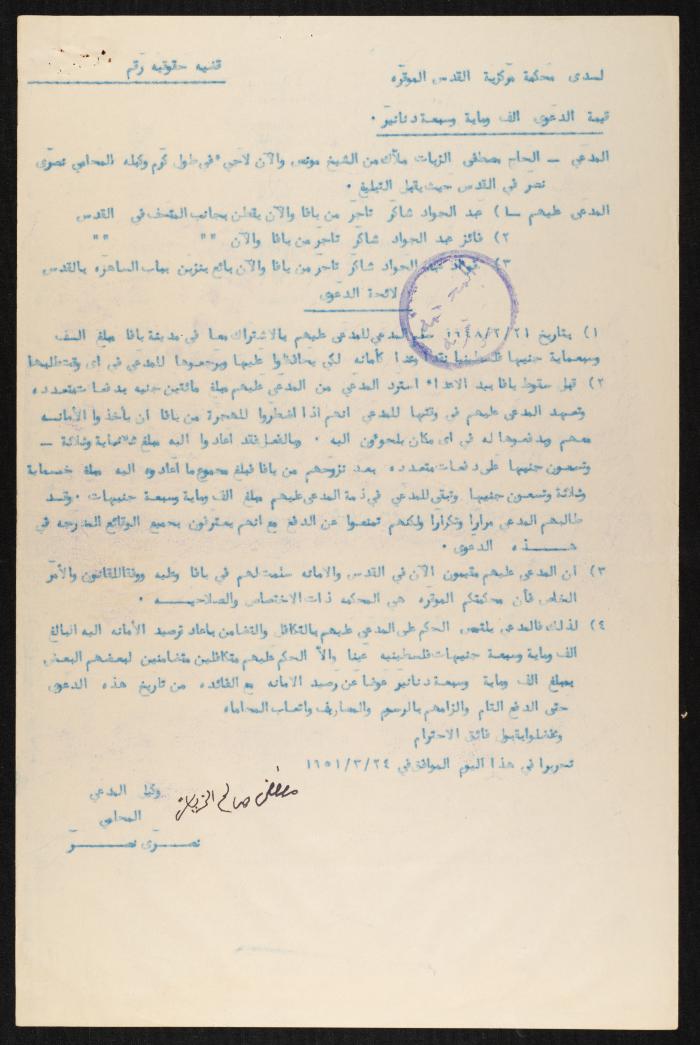 لدى محكمة مركزية القدس الموقره
قضيه حقوقيه رقم
قيمة الدعوى الف وماية وسبعة دنانير .
المدعي – الحاج مصطفى الزيات ملاك من الشيخ مونس والآن لاجيء في طول كرم وكيله المحامي نصري
نصر في القدس حيث يقبل التبليغ .
المدعى عليهم – ١) عبد الجواد شاكر تاجر من يافا والآن يقطن بجانب المتحف في القدس
٢) فائز عبد الجواد شاكر تاجر من يافا والآن " " " "
٣) عبد الجواد شاكر تاجر من يافا والآن بائع بنزين بباب الساهره بالقدس
لائحة الدعوى
١) بتاريخ ١٩٤٨/٢/٢١ سلم المدعي للمدعى عليهم بالاشتراك معا في مدينة يافا مبلغ الف
وسبعماية جنيها فلسطينيا نقدا وعدا كأمانه لكي يحافظوا عليها ويرجعوها للمدعي في اى وقت طلبها
٢) قبل سقوط يافا بيد الاعداء استرد المدعي من المدعى عليهم مبلغ مائتين جنيه بدفعات متعدده
وتعهد المدعى عليهم في وقتها للمدعي انهم اذا اضطروا للهجرة من يافا ان يأخذوا الأمانه
معهم ويدفعوها له في اى مكان يلجؤون اليه . وبالفعل فقد اعادوا اليه مبلغ ثلاثماية وثلاثة –
وتسعون جنيها على دفعات متعدده بعد نزوحهم من يافا فبلغ مجموع ما اعادوه اليه مبلغ خمسماية
وثلاثة وتسعون جنيها وتبقى للمدعي في ذمة المدعى عليهم مبلغ الف وماية وسبعة جنيهات . وقد
طالبهم المدعي مرارا وتكرارا ولكنهم تمنعوا عن الدفع مع انهم يعترفون بجميع الوقائع المدرجه في
هـــذه الدعوى .
٣) ان المدعى عليهم مقيمون الآن في القدس والامانه سلمت لهم في يافا وعليه ووفقا للقانون والأمر
الخاص فأن محكمتكم الموقره هي المحكمه ذات الاختصاص والصلاحيــه .
٤) لذلك فالمدعي يلتمس الحكم على المدعى عليهم بالتكافل والتضامن باعادة رصيد الأمانه اليه البالغ
الف وماية وسبعة جنيهات فلسطينيه عينا والا الحكم عليهم متكافلين متضامنين لبعضهم البعض
بمبلغ الف وماية وسبعة دنانير عوضا عن رصيد الامانه مع الفائده من تاريخ هذه الدعوى
حتى الدفع التام والزامهم بالرسوم والمصاريف واتعاب المحاماه
وتفضلوا بقبول فائق الاحترام
تحريرا في هذا اليوم الموافق في ١٩٥١/٣/٢٤
وكيل المدعي
مصطفى صالح الزيات
المحامي
نصــرى نصــر